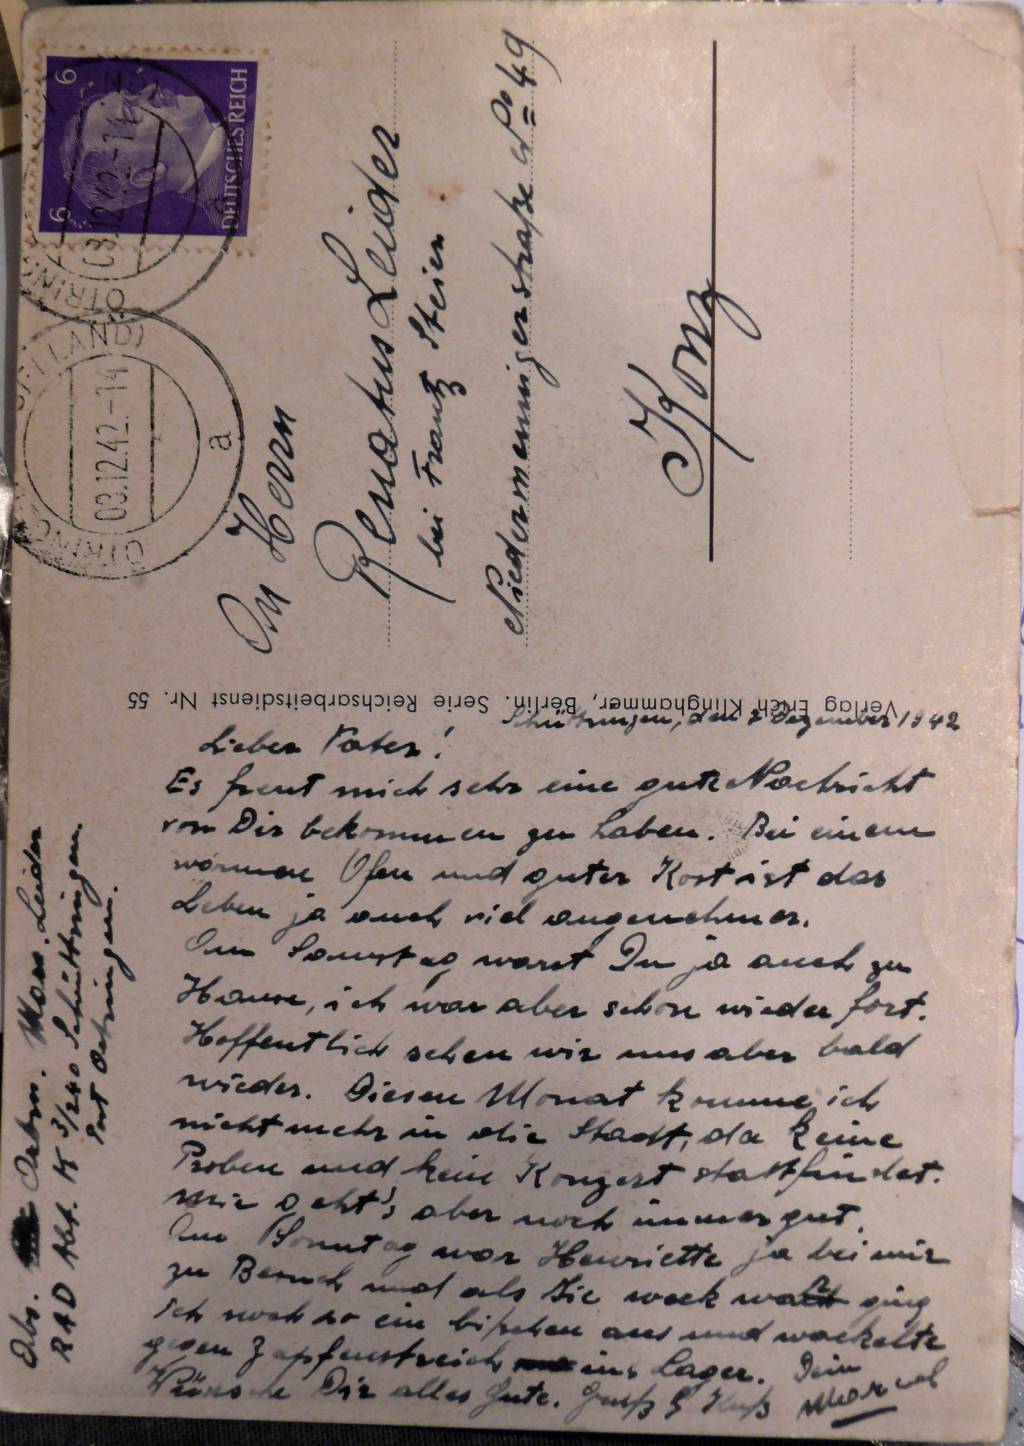 6 6
DEUTSCHES REICH
03.12.42.-14
ÖTRINGEN
03.12.42.-14
a
An Herrn
Renatus Leider
bei Frantz Steien
Niedermenniger straße No 49
Konz
Verlag Erich Klinghammer, Berlin. Serie Reichsarbeitsdienst Nr. 55
Schüttringen, den 2 Dezember 1942
Lieber Vater!
Es freut mich sehr eine gute Nachricht
von Dir bekommen zu haben. Bei einem
warmen Ofen und guter Kost ist das
Leben ja auch viel angenehmer.
Am Samstag warst Du ja auch zu
Hause, ich war aber schon wieder fort.
Hoffentlich sehen wir uns aber bald
wieder. Diesen Monat komme ich
nicht mehr in die Stadt, da keine
Proben und kein Konzert stattfindet.
Mir geht's aber noch immer gut.
Am Sonntag war Henriette ja bei mir
zu Besuch und als Sie weck war ging
ich noch so ein bißchen aus und wackelte
gegen Zapfenstreich ins Lager.
Wünsche Dir alles Gute. Gruß & Kuß
Dein
Marcel
Abs. Arbm. Marc. Leider
RAD Abt. K 3/240 Schüttringen
Post Oetringen.